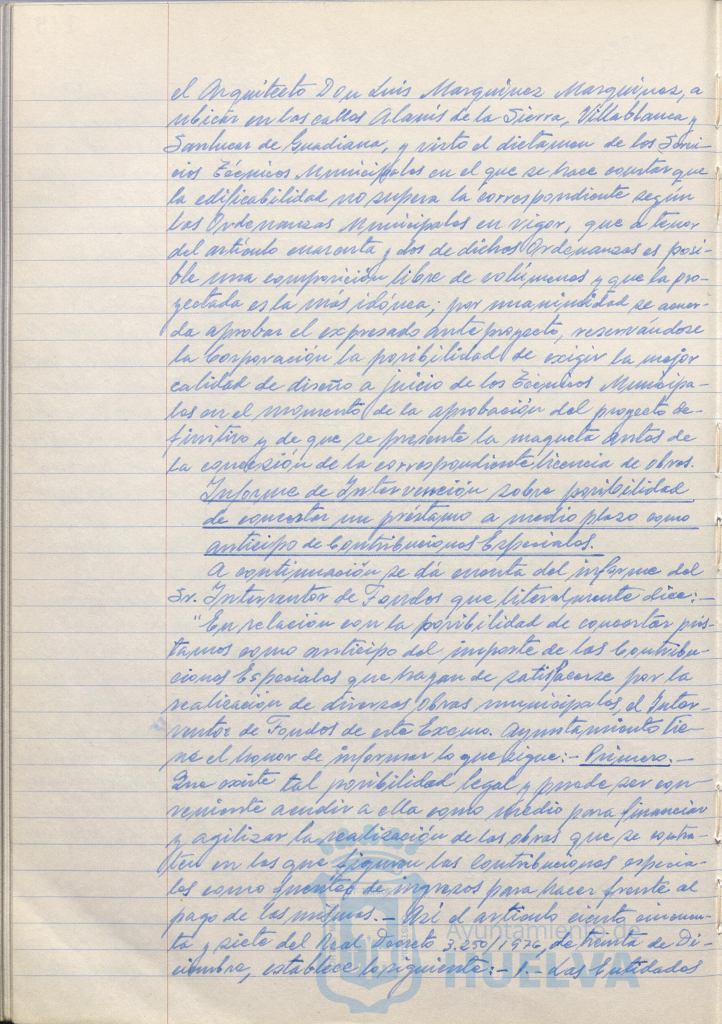 el Arquitecto Don Luis Marquinez Marquinez, a
ubicar en las calles Alanis de la Sierra, Villablanca y
Sanlucar de Guadiana, y visto el dictamen de los Servi-
cios Técnicos Municipales en el que se hace constar que
la edificabilidad no supera la correspondiente según
las Ordenanzas Municipales en vigor, que a tenor
del artículo cuarenta y dos de dichas Ordenanzas es posi-
ble una composición libre de volúmenes y que la pro-
yectada es la más idónea; por unanimidad se acuer-
da aprobar el expresado anteproyecto, reservándose
la Corporación la posibilidad de exigir la mejor
calidad de diseño a juicio de los Técnicos Municipa-
les en el momento de la aprobación del proyecto de-
finitivo y de que se presente la maqueta antes de
la concesión de la correspondiente licencia de obras.
Informe de Intervención sobre posibilidad
de concertar un préstamo a medio plazo como
anticipo de Contribuciones Especiales.
A continuación se dá cuenta del informe del
Sr. Interventor de Fondos que literalmente dice:-
"En relación con la posibilidad de concertar prés-
tamos como anticipo del importe de las Contribu-
ciones Especiales que hayan de satisfacerse por la
realización de diversas obras municipales, el Inter-
ventor de Fondos de este Excmo. Ayuntamiento tie-
ne el honor de informar lo que sigue:- Primero.-
Que existe tal posibilidad legal y puede ser con-
veniente acudir a ella como medio para financiar
y agilizar la realización de las obras que se contra-
ten en las que figuran las Contribuciones especia-
les como fuentes de ingresos para hacer frente al
pago de las mismas.- Así el artículo ciento cincuen-
ta y siete del Real Decreto 3.250/1976, de treinta de Di-
ciembre, establece lo siguiente:- 1.- Las Entidades
Ayuntamiento de
HUELVA